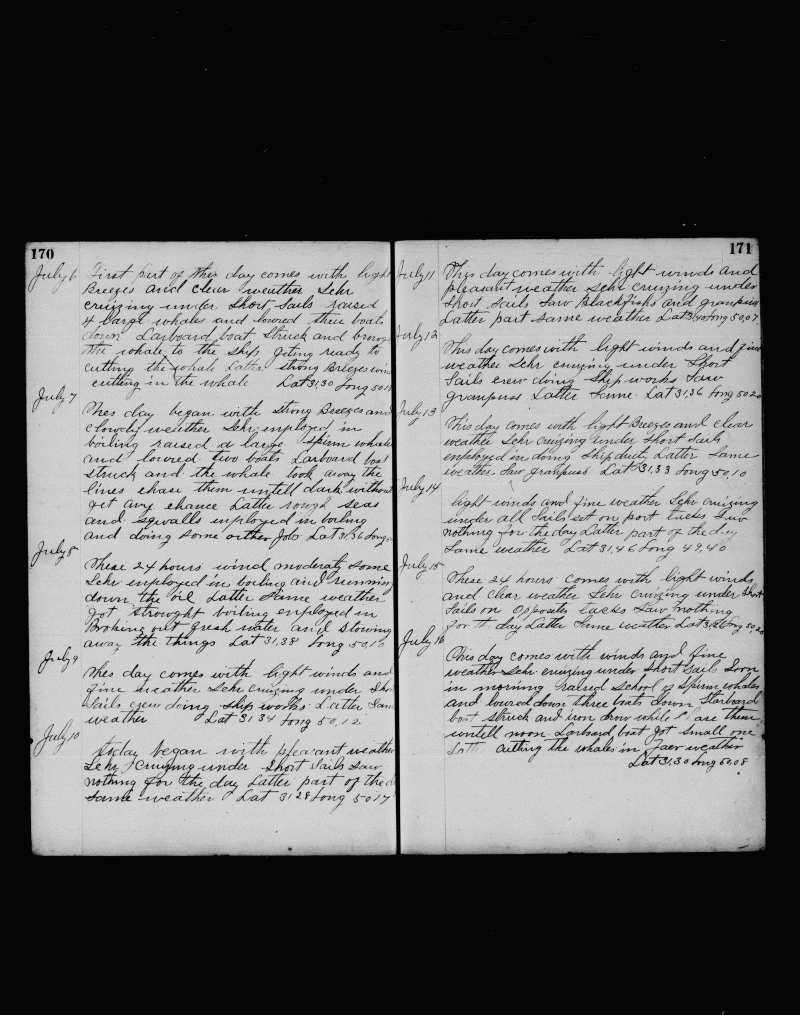 170
July 6 First part of this day comes with light
Breezes and clear weather Schr
cruizing under Short Sails raised
4 large whales and lowered three boats
down Larboard boat Struck and
the whale to the Ship, geting ready to
cutting the whale Latter strong Breezes
cutting in the whale Lat 31,30 Long 50
July 7 Thes day began with strong Breezes and
clowdy weather Schr, employed in
boiling raised a large Spirm whale
and lowered two boats Larboard boat
struck and the whale took away the
lines chase them untell dark without
get any chance Latter rough seas
and sqwalls employed in boiling
and doing some other Job Lat 31,36 Long
July 8 These 24 hours wind moderatly some
Schr employed in boiling and running
down the oil Latter Same weather
got strought boiling employed in
Broking out fresh water and stowing
away the things Lat 31,38 Long 50,1
July 9 Thes day comes with light winds and
fine weather Schr cruizing under Sho
Sails crew doing Ship works Latter Sam
weather Lat 31 34 Long 50,12
July 10 today began with pleasant weather
Schr cruizing under Short Sails saw
nothing for the day Latter part of the d
Same weather Lat 31 28 Long 50 17
171
July 11 This day comes with light winds and
pleasant weather Schr cruizing under
Short Sails Saw Blackfishs and grampuss
Latter part same weather Lat 31,40 Long 50,07
July 12
This day comes with light winds and fine
weather Schr cruizing under Short
Sails crew doing Ship works Saw
grampuss Latter Same Lat 31,36 Long 50 20
July 13 This day comes with light Breezes and clear
weather Schr cruizing under Short Sails
employed in doing Ship duty Latter Same
weather Saw grampuss Lat 31,33 Long 50,10
July 14
light winds and fine weather Schr cruizing
under all Sails set on port tacks Saw
nothing for the day Latter part of the day
Same weather Lat 31,46 Long 49,40
July 15 These 24 hours comes with light winds
and clear weather Schr cruizing under Short
Sails on Opposite tacks Saw nothing
for th day Latter Same weather Lat 31, Long 50,20
July 16
This day comes with winds and fine
weather Schr cruizing under Short Sails Soon
in morning raised School of Spirm whales
and lowred down three boats down, Starboard
boat struck and iron drow while are them
untell noon Larboard boat got small one
Latt cutting the whales in Faer weather
Lat 31,30 Long 50,08